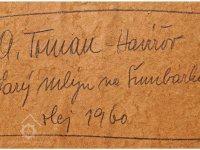 A. Toman - Havířov
starý mlýn na Šumbarku
olej 1960